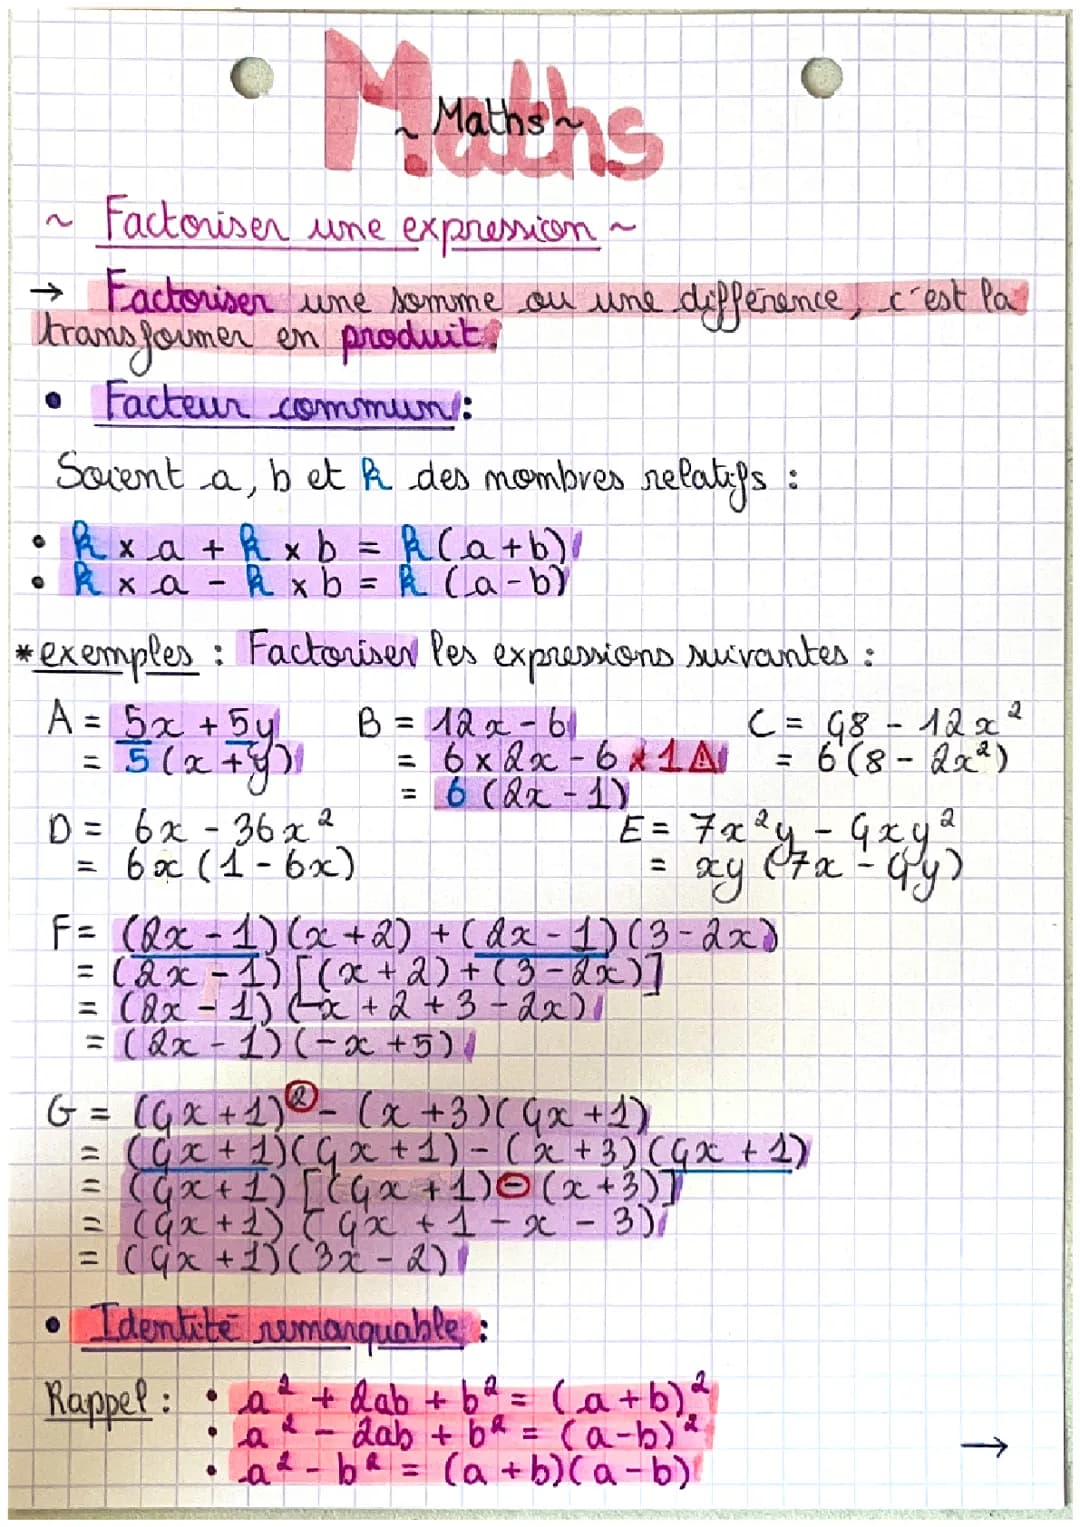 Maths
~ Maths ~
~ Factoriser une expression ~
→ Factoriser une somme ou une différence, c'est la
transformer en produit.
• Facteur commun :
Soient a, b et k des nombres relatifs :
• k x a + k x b = k(a+b)
• k x a - k x b = k (a-b)
*exemples : Factoriser les expressions suivantes :
A = 5x + 5y B = 12x - 6 C = 48 - 12x²
= 5(x+y) = 6 x 2x - 6 x 1 ⚠ = 6(8 - 2x²)
= 6 (2x - 1)
D = 6x - 36x² E = 7x²y - 4xy²
= 6x (1 - 6x) = xy (7x - 4y)
F= (2x - 1)(x+2) + (2x - 1)(3-2x)
= (2x - 1) [(x+2) + (3-2x)]
= (2x - 1) (x + 2 + 3 - 2x)
= (2x - 1) (-x +5)
G = (4x+1)² - (x+3)(4x+1)
= (4x+1)(4x+1) - (x+3)(4x+1)
= (4x+1) [(4x+1) - (x+3)]
= (4x+1) (4x + 1 - x - 3)
= (4x+1)(3x - 2)
• Identité remarquable :
Rappel : • a² + 2ab + b² = (a+b)²
• a² - 2ab + b² = (a-b)²
• a² - b² = (a+b)(a-b)
→